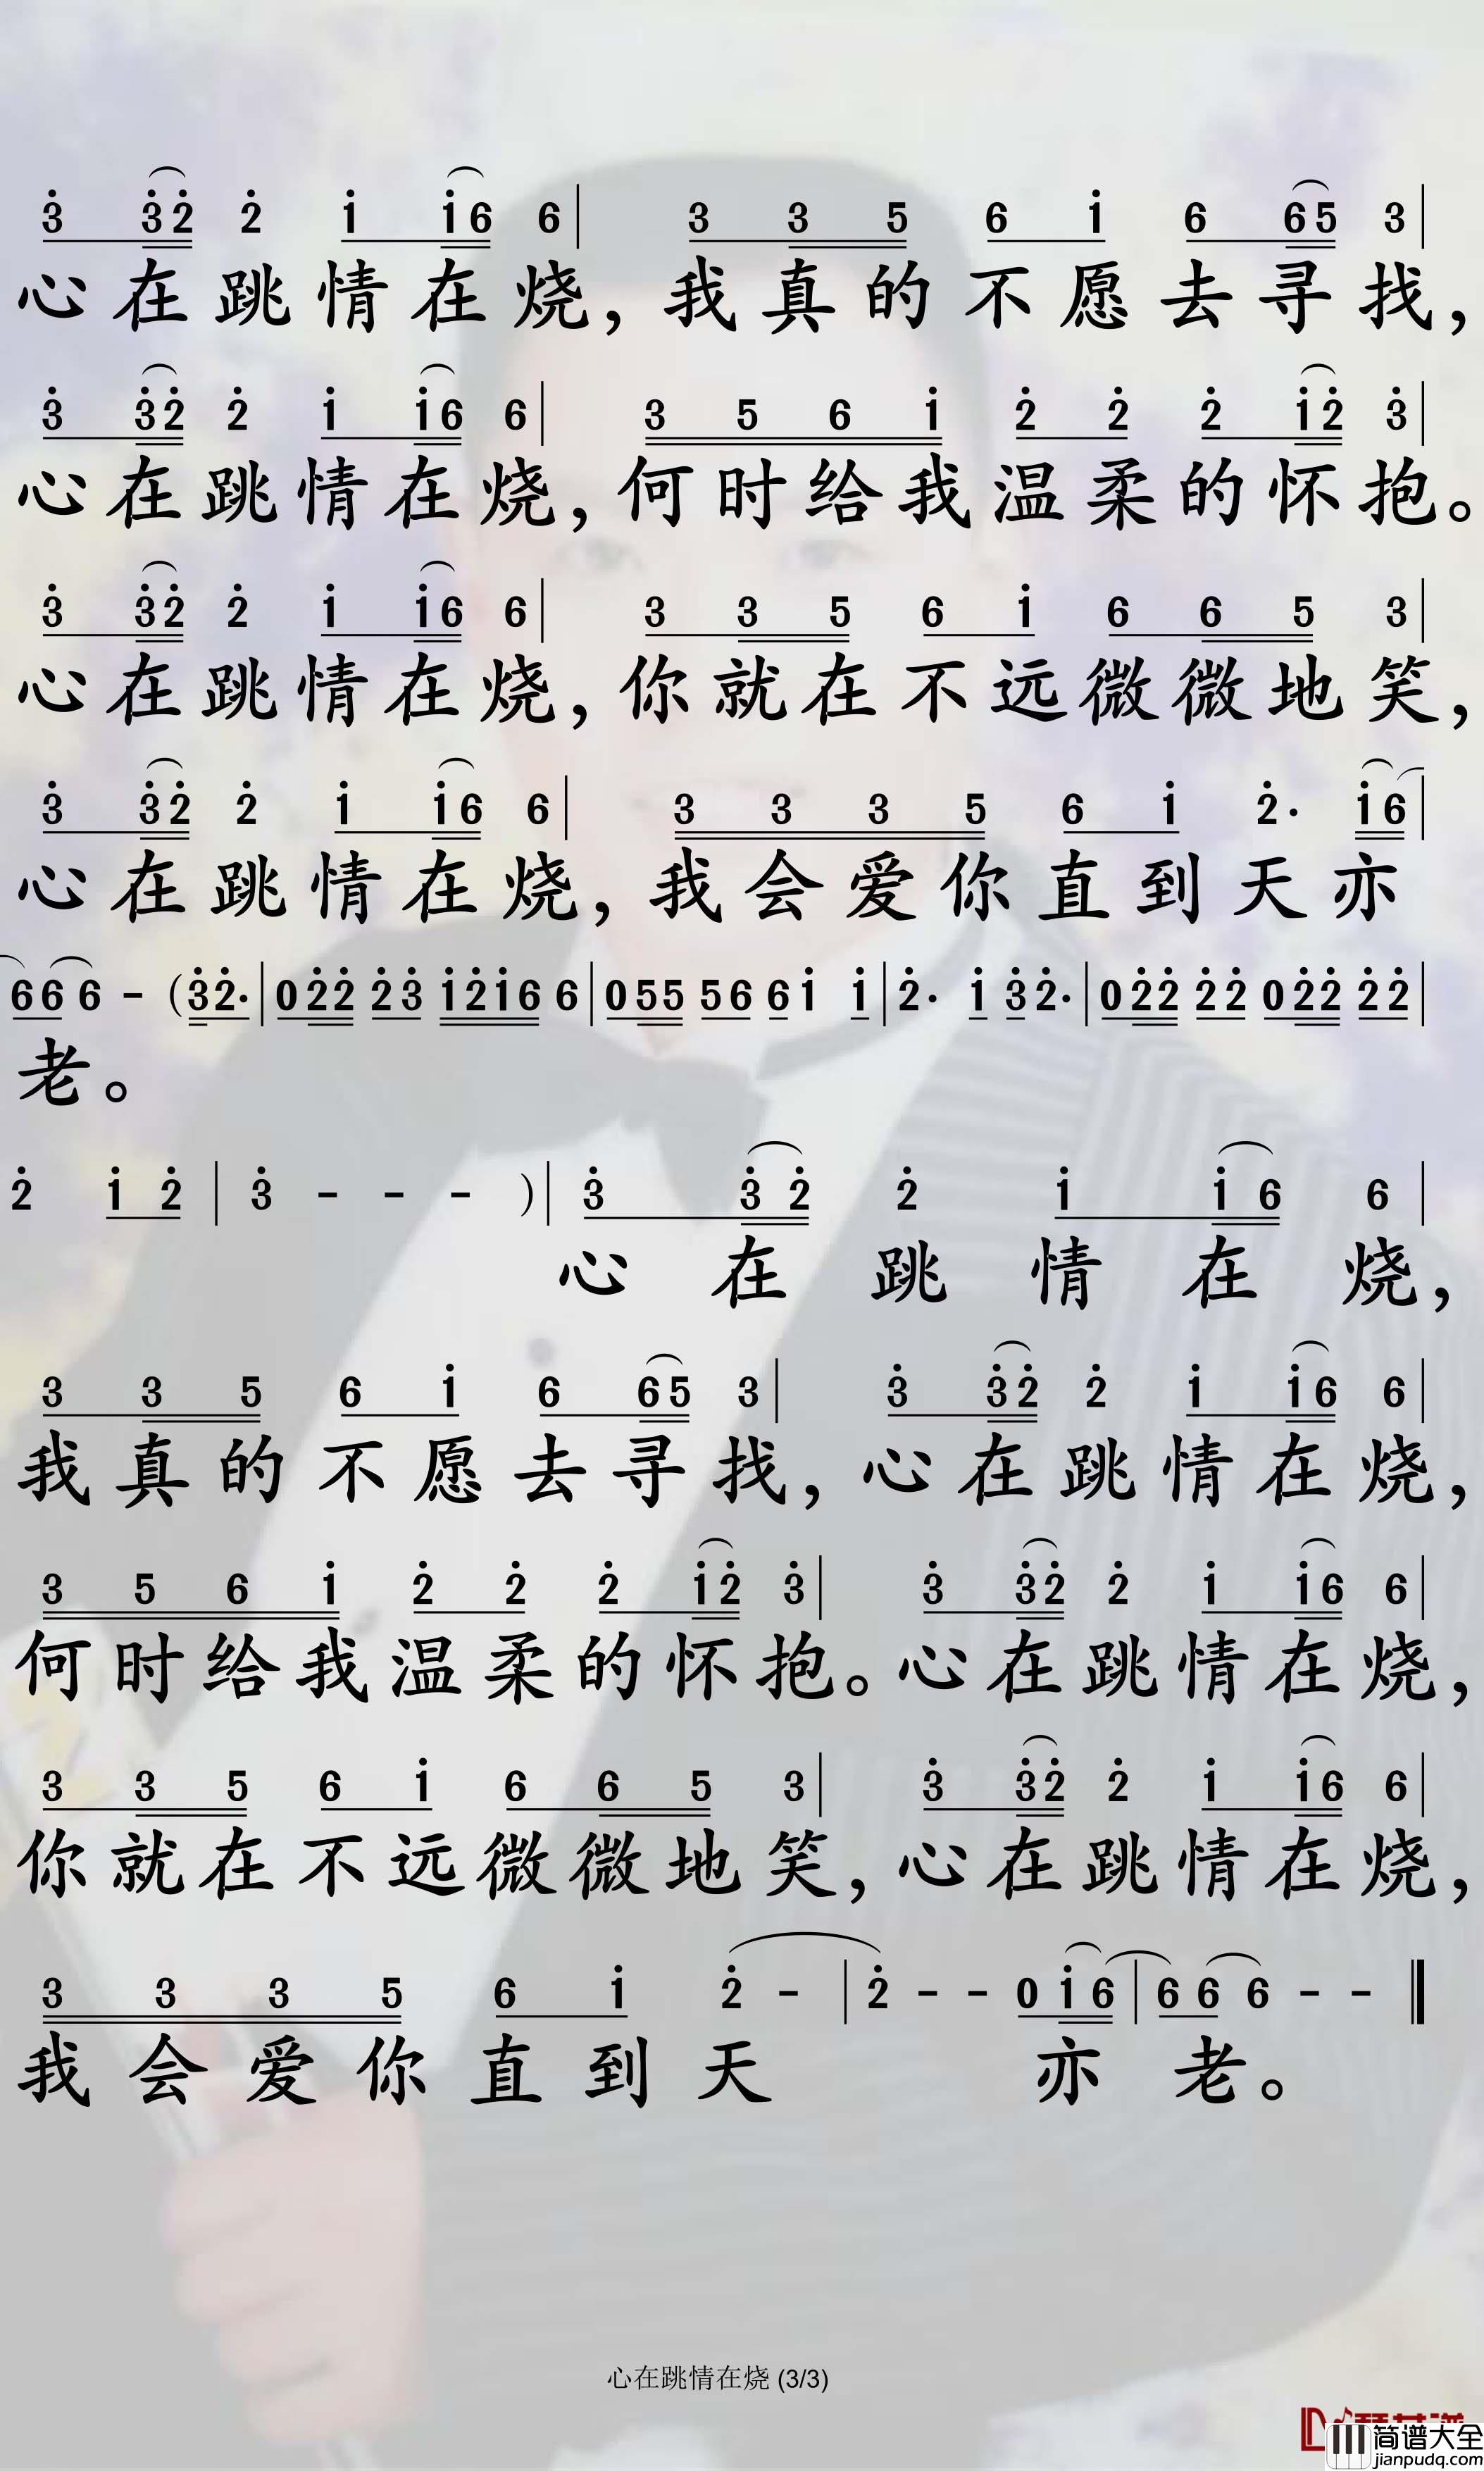 3 3 2 2 1 1 6 6 | 3 3 5 6 1 6 6 5 3 |
心在跳情在烧，我真的不愿去寻找，
3 3 2 2 1 1 6 6 | 3 5 6 1 2 2 2 1 2 3 |
心在跳情在烧，何时给我温柔的怀抱。
3 3 2 2 1 1 6 6 | 3 3 5 6 1 6 6 5 3 |
心在跳情在烧，你就在不远微微地笑，
3 3 2 2 1 1 6 6 | 3 3 3 5 6 1 2· 1 6 |
心在跳情在烧，我会爱你直到天亦
6 6 6 - ( 3 2· | 0 2 2 2 3 1 2 1 6 6 | 0 5 5 5 6 6 1 1 | 2· 1 3 2· | 0 2 2 2 2 0 2 2 2 2 |
老。
2 1 2 | 3 - - - ) | 3 3 2 2 1 1 6 6 |
心在跳情在烧，
3 3 5 6 1 6 6 5 3 | 3 3 2 2 1 1 6 6 |
我真的不愿去寻找，心在跳情在烧，
3 5 6 1 2 2 2 1 2 3 | 3 3 2 2 1 1 6 6 |
何时给我温柔的怀抱。心在跳情在烧，
3 3 5 6 1 6 6 5 3 | 3 3 2 2 1 1 6 6 |
你就在不远微微地笑，心在跳情在烧，
3 3 3 5 6 1 2 - | 2 - - 0 1 6 | 6 6 6 - - ‖
我会爱你直到天亦老。
心在跳情在烧 (3/3)
简谱大全
jianpudq.com